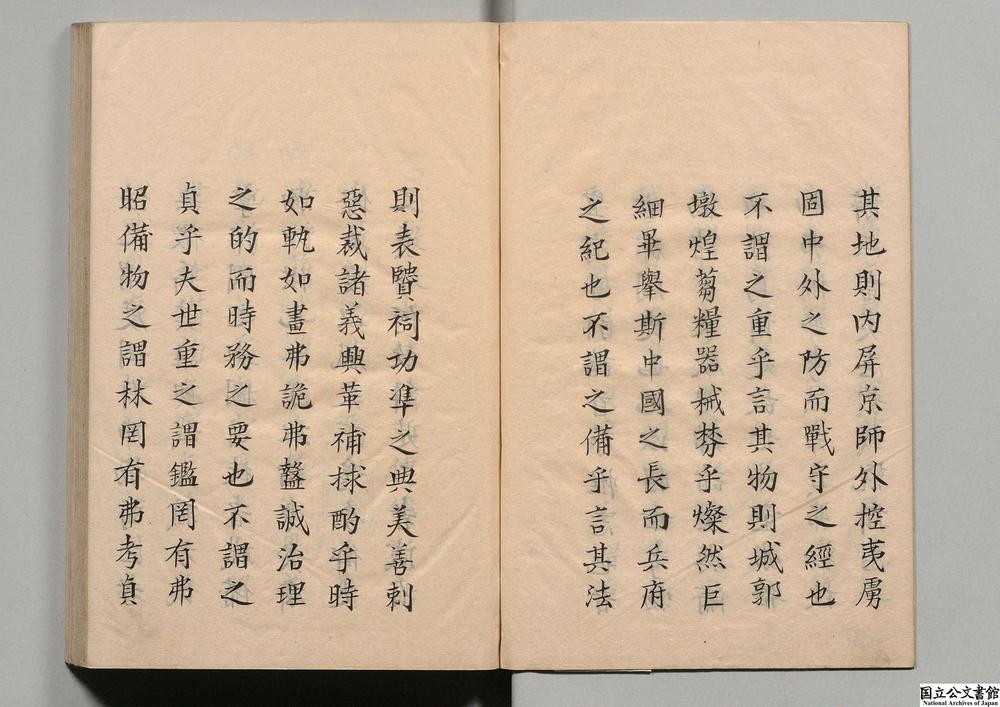 其地則内屏京師外控夷虜
固中外之防而戰守之經也
不謂之重乎言其物則城郭
墩煌蒭糧器械棼乎燦然巨
細畢舉斯中國之長而兵府
之紀也不謂之備乎言其法
則表賢祠功準之典美善刺
惡裁諸義興革補捄酌乎時
如軌如畫弗詭弗盭誠治理
之的而時務之要也不謂之
貞乎夫世重之謂鑑罔有弗
昭備物之謂林罔有弗考貞
国立公文書館
National Archives of Japan